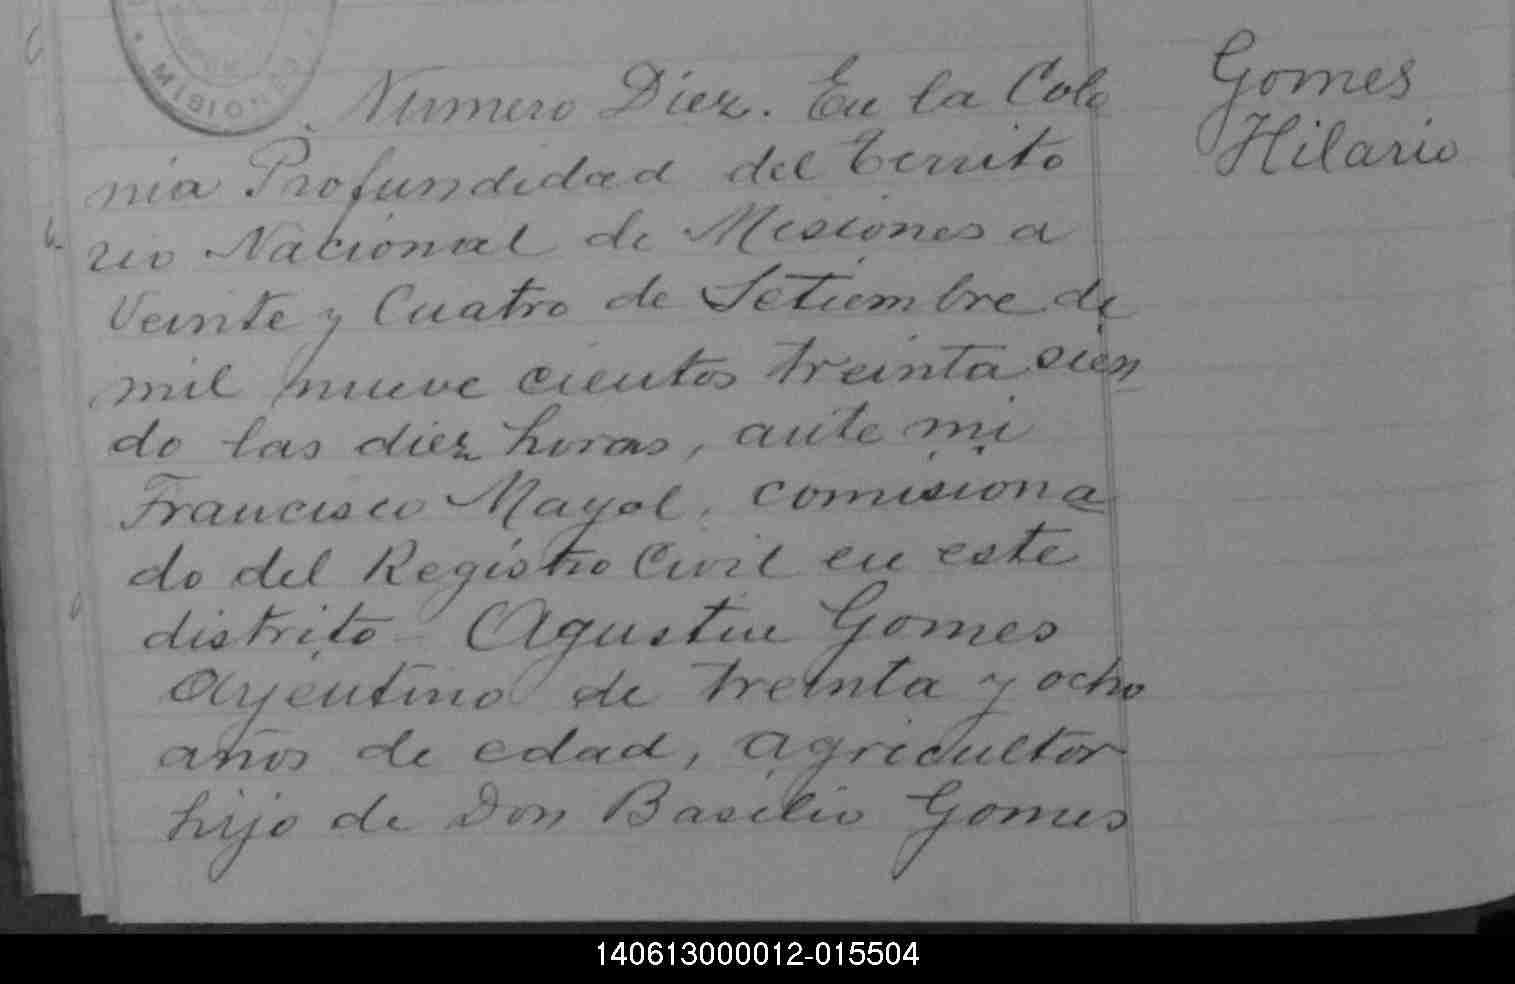 MISIONES
Numero Diez. En la Colo
nia Profundidad del Territo
rio Nacional de Misiones a
Veinte y Cuatro de Setiembre de
mil nueve cientos treinta sien
do las diez horas, ante mi
Francisco Mayol, comisiona
do del Registro Civil en este
distrito - Agustin Gomes
Arjentino de treinta y ocho
años de edad, agricultor
hijo de Don Basilio Gomes
Gomes
Hilario
140613000012-015504